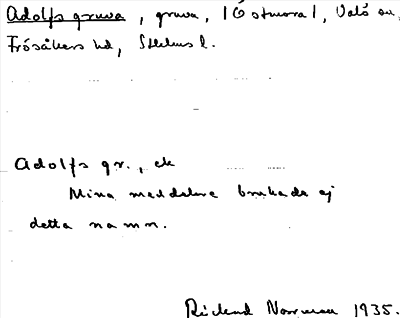 Adolfs gruva, gruva, (Östmora), Valö sn,
Frösåkers hd, Sthlms l.
Adolfs gr., ek
Mina meddelare brukade ej
detta namn.
Rickard Norrman 1935.